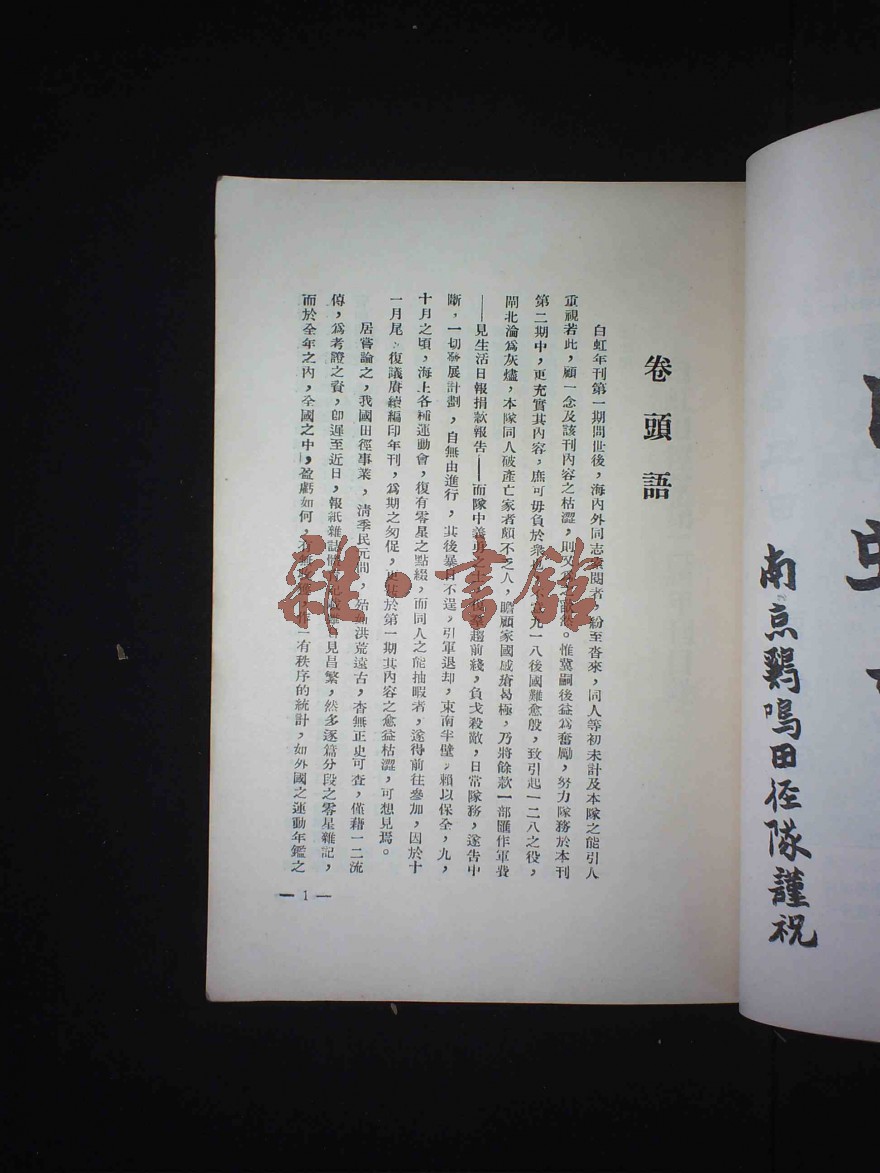 南京鷄鳴田徑隊謹祝
卷頭語
白虹年刊第一期問世後，海內外同志索閱者，紛至沓來，同人等初未計及本隊之能引人
重視若此，顧一念及該刊內容之枯澀，則又為之歉然。惟冀嗣後益為奮勵，努力隊務於本刊
第二期中，更充實其內容，庶可毋負於衆也。九一八後國難愈殷，致引起一二八之役，
閘北淪為灰燼，本隊同人破產亡家者頗不乏人，瞻顧家國感瘡曷極，乃將餘款一部匯作軍費
——見生活日報捐款報告——而隊中義勇之士，羣趨前綫，負戈殺敵，日常隊務，遂告中
斷，一切發展計劃，自無由進行，其後暴日不逞，引軍退却，東南半壁，賴以保全，九，
十月之頃，海上各種運動會，復有零星之點綴，而同人之能抽暇者，遂得前往參加，因於十
一月尾，復議賡續編印年刊，為期之匆促，更於第一期其內容之愈益枯澀，可想見焉。
居嘗論之，我國田徑事業，清季民元間，殆如洪荒遠古，杳無正史可查，僅藉一二流
傳，為考證之資，卽遲至近日，報紙雜誌見昌繁，然多逐篇分段之零星雜記，
而於全年之內，全國之中，盈虧如何，有秩序的統計，如外國之運動年鑑之
— 1 —
雜·書館